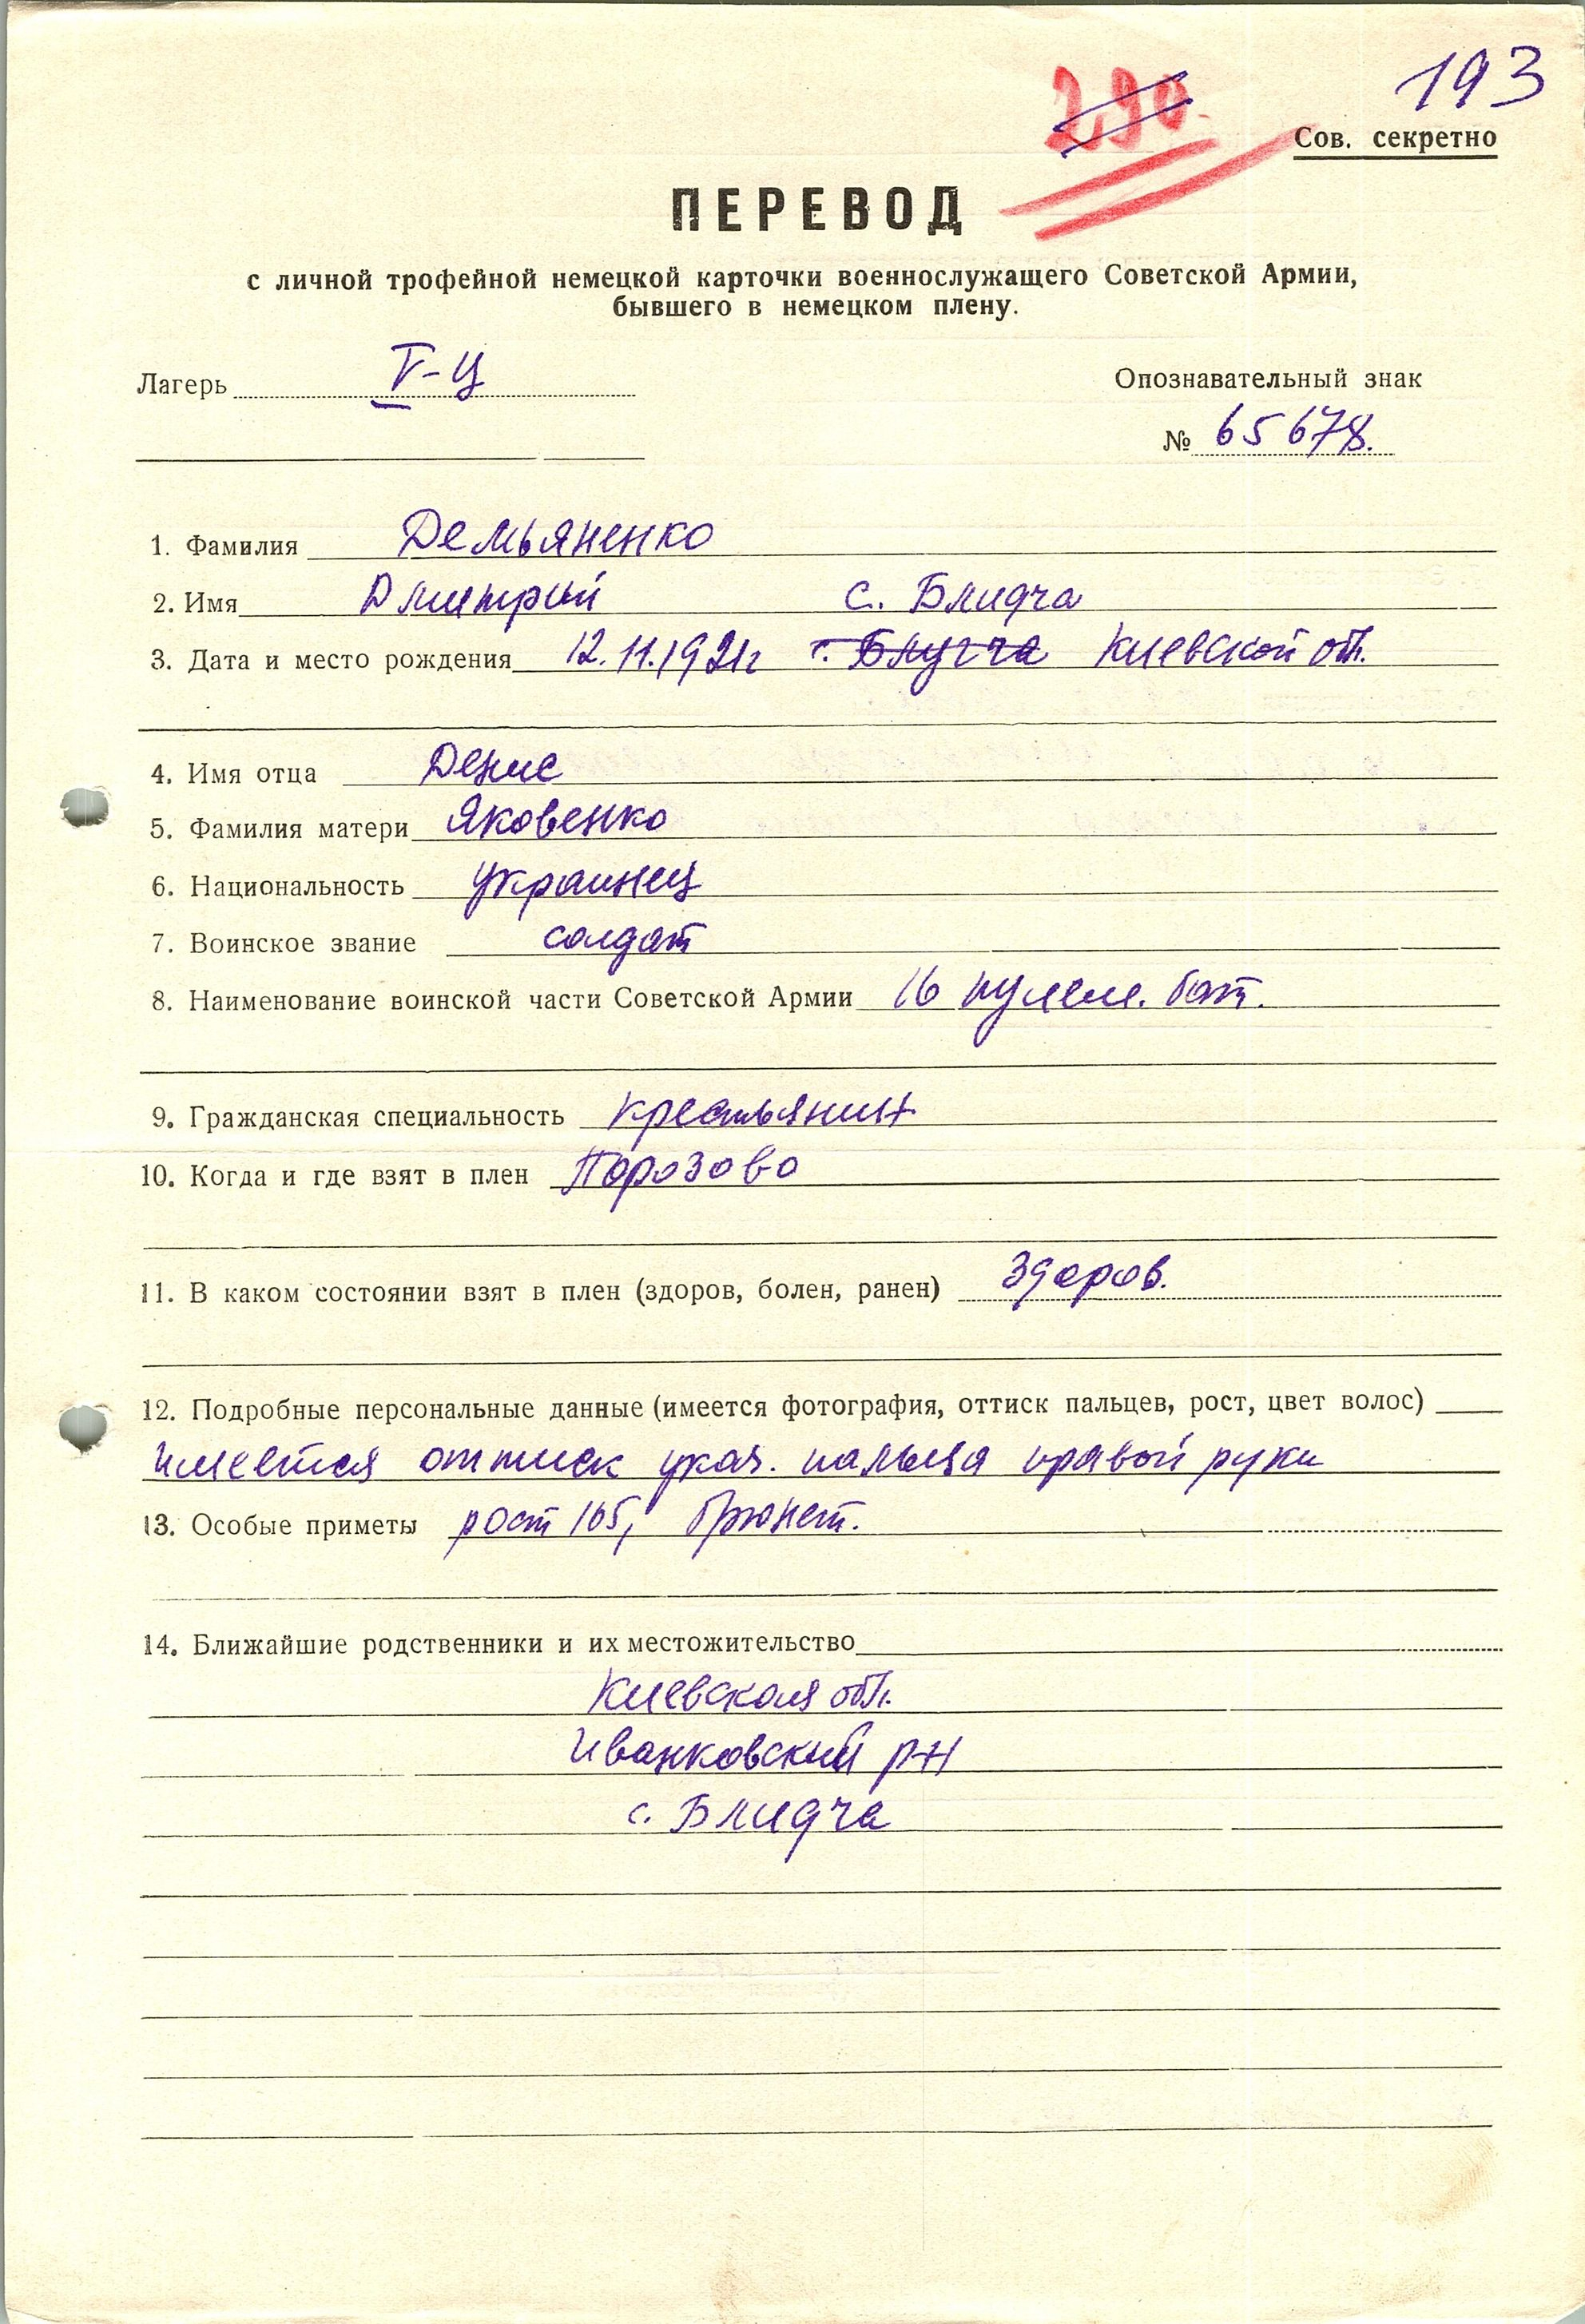 193
290
Сов. секретно
ПЕРЕВОД
с личной трофейной немецкой карточки военнослужащего Советской Армии,
бывшего в немецком плену.
Лагерь V-Ц
Опознавательный знак
№ 65678.
1. Фамилия Демьяненко
2. Имя Дмитрий с. Блидча
3. Дата и место рождения 12.11.1921г г. Блугча Киевской обл.
4. Имя отца Денис
5. Фамилия матери Яковенко
6. Национальность украинец
7. Воинское звание солдат
8. Наименование воинской части Советской Армии 16 пулем. бат.
9. Гражданская специальность крестьянин
10. Когда и где взят в плен Порозово
11. В каком состоянии взят в плен (здоров, болен, ранен) здоров.
12. Подробные персональные данные (имеется фотография, оттиск пальцев, рост, цвет волос)
имеется оттиск указ. пальца правой руки
13. Особые приметы рост 165, брюнет.
14. Ближайшие родственники и их местожительство
Киевская обл.
Иванковский р-н
с. Блидча